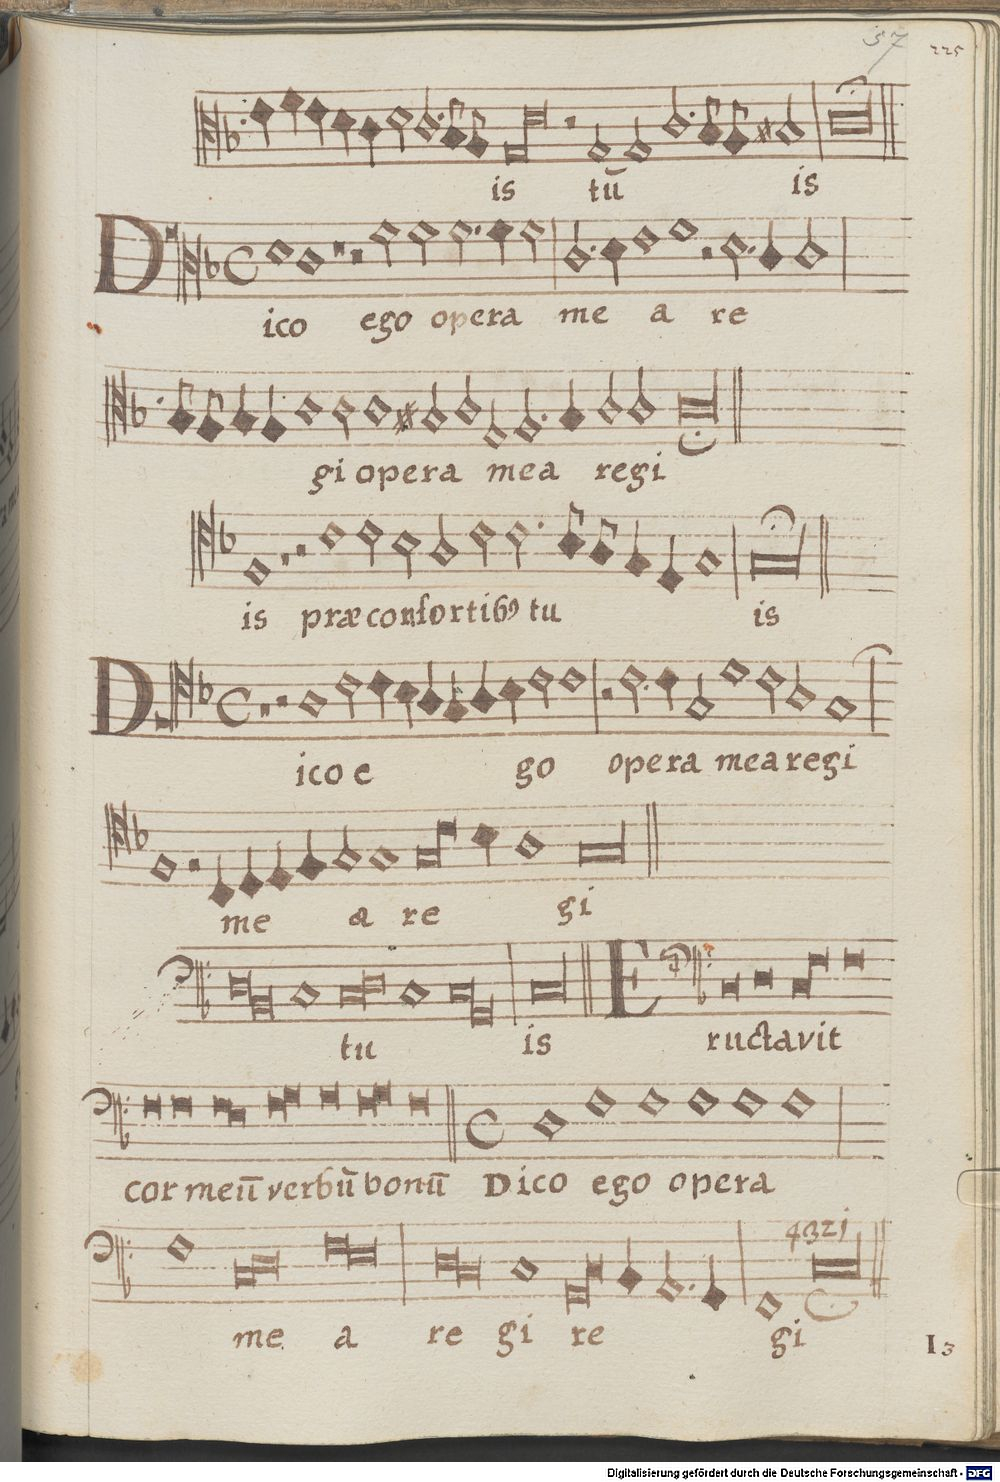 57 225
is tū is
Dico ego opera me a re
gi opera mea regi
is præconsortibꝰ tu is
Dico e go opera mea regi
me a re gi
tu is Eructavit
cor meū verbū bonū Dico ego opera
4321
me a re gi re gi
I3
Digitalisierung gefördert durch die Deutsche Forschungsgemeinschaft - DFG